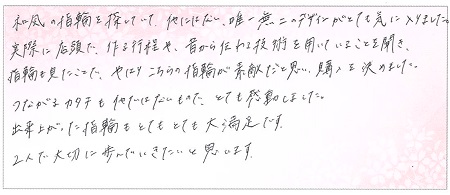 和風の指輪を探していて、他にはない、唯一無二のデザインがとても気に入りました。
実際に店頭で、作る行程や、昔から伝わる技術を用いていることを聞き、
指輪を見たことで、やはりこちらの指輪が素敵だと思い、購入を決めました。
つながるカタチも他ではないもので、とても感動しました。
出来上がった指輪もとてもとても大満足です。
2人で大切に歩んでいきたいと思います。